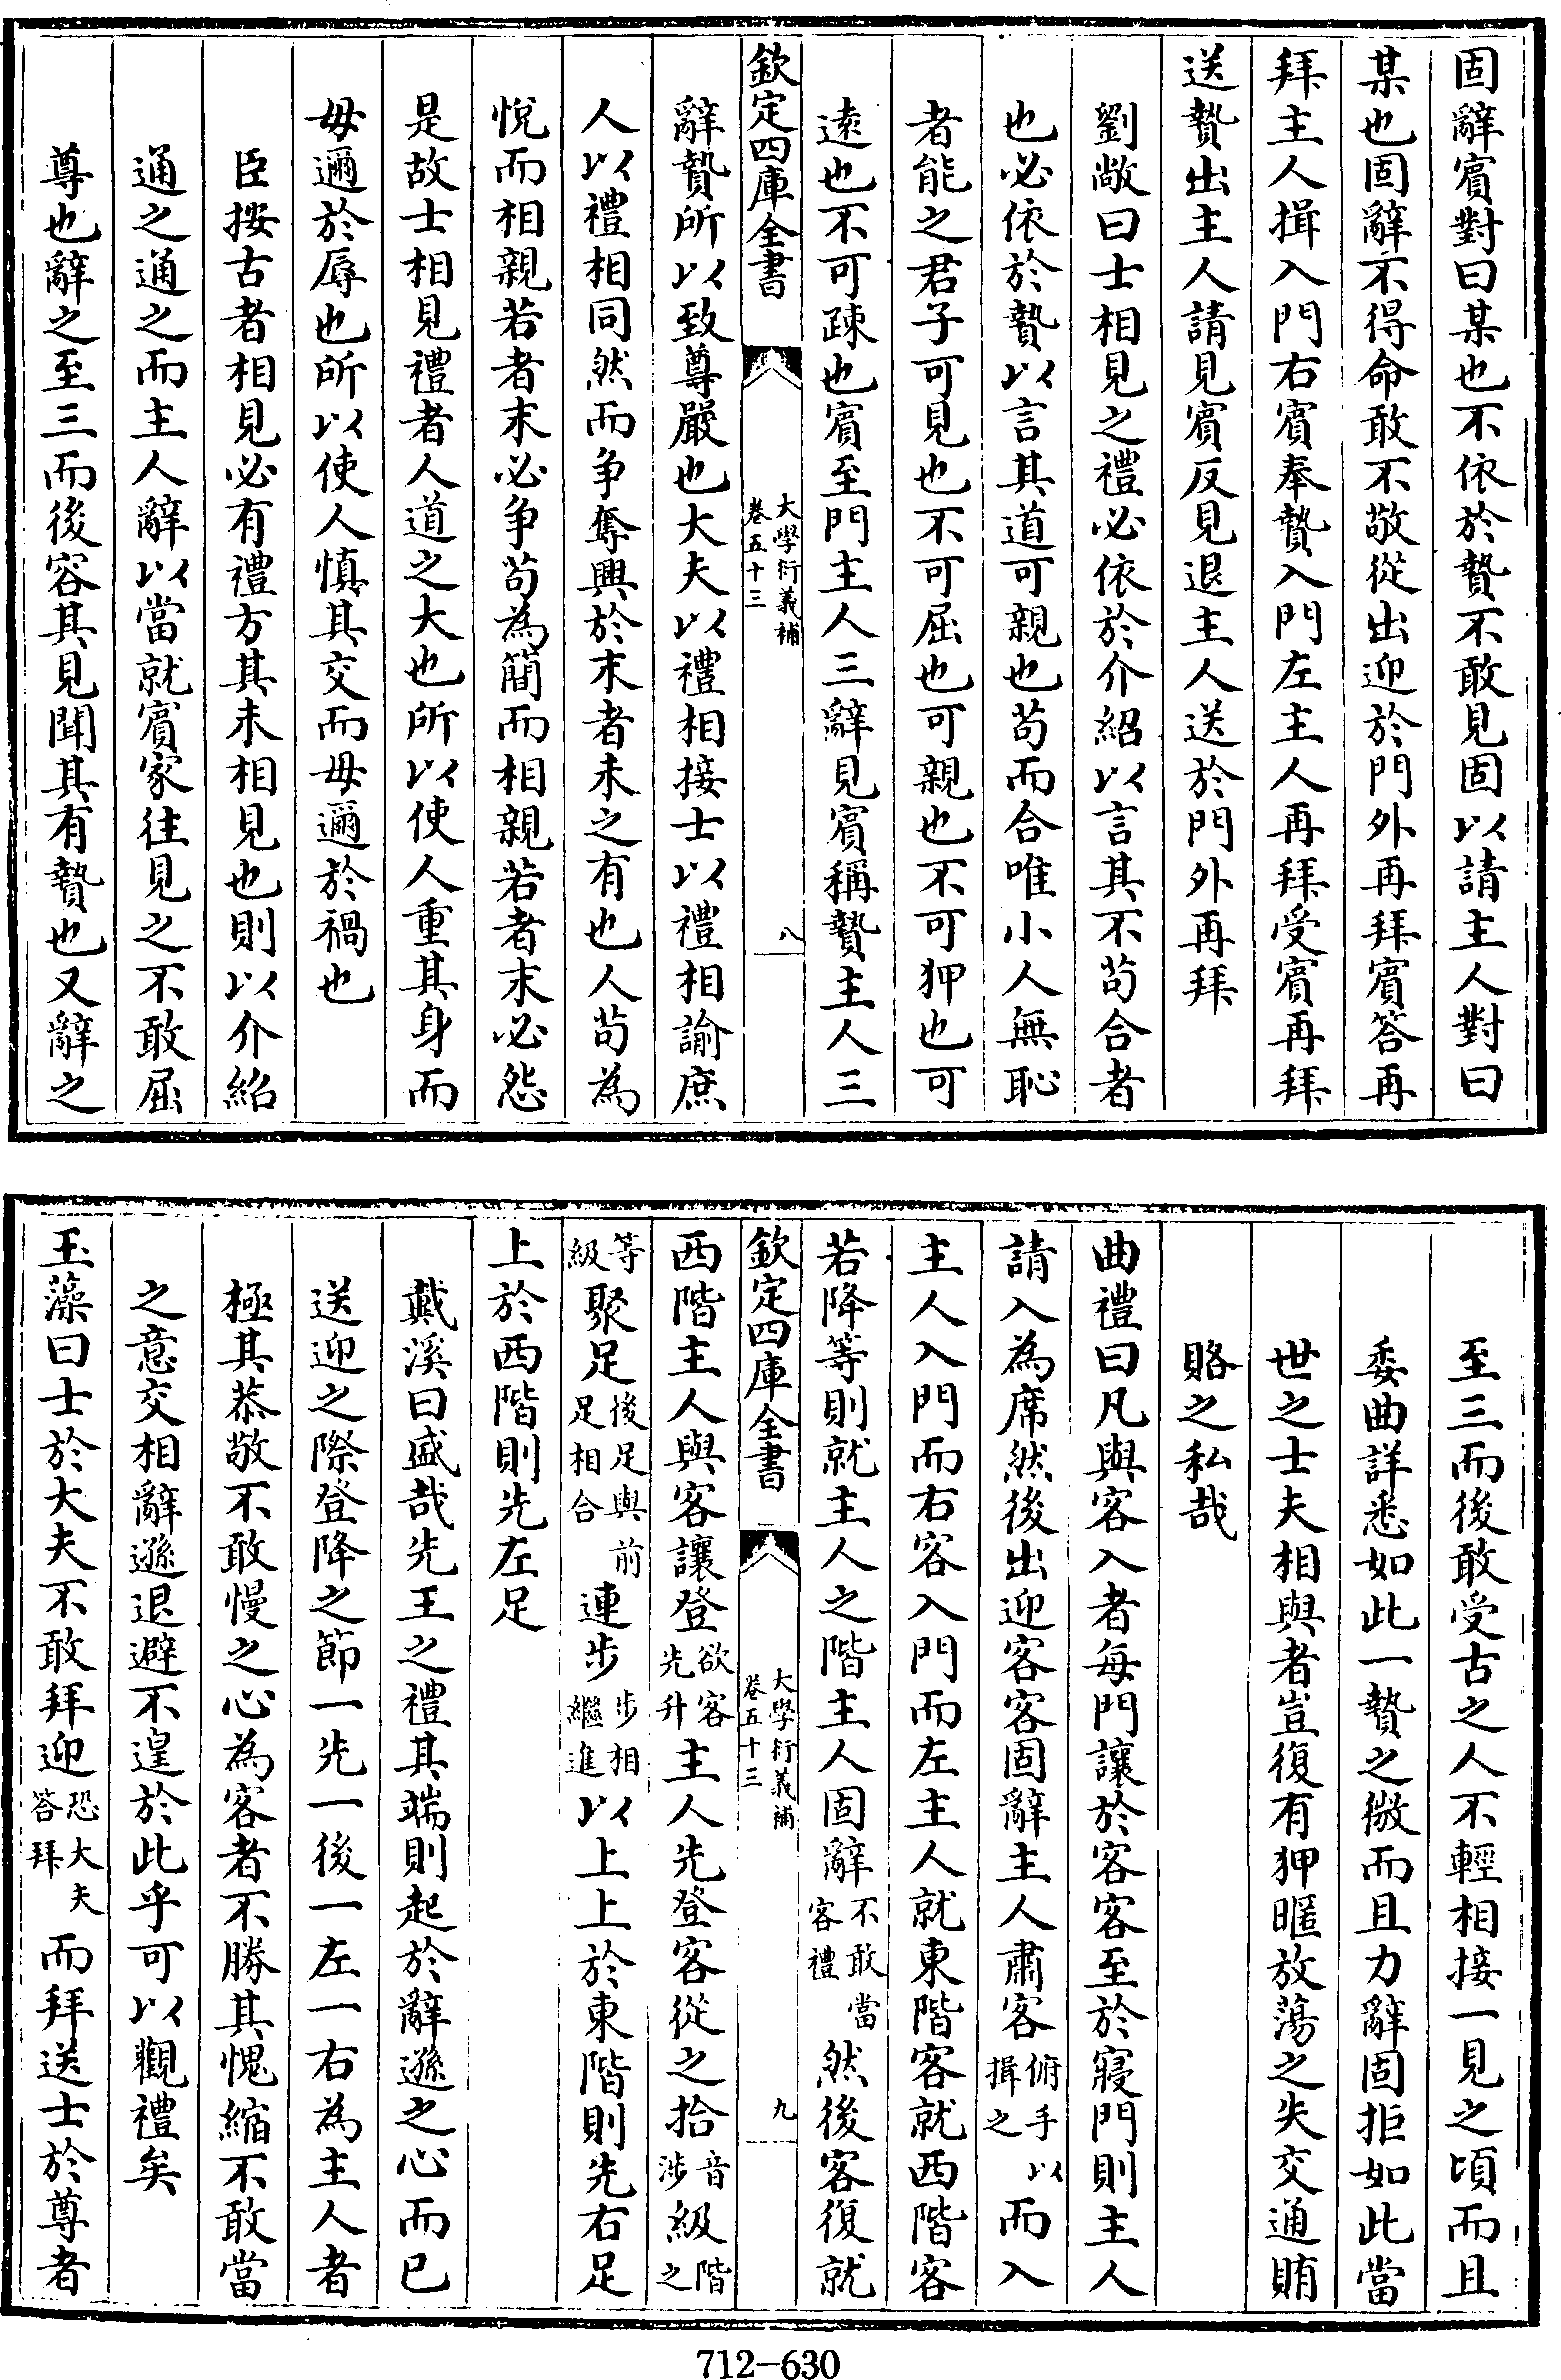 固辭賓對曰某也不依於贄不敢見固以請主人對曰
某也固辭不得命敢不敬從出迎於門外再拜賓答再
拜主人揖入門右賓奉贄入門左主人再拜受賓再拜
送贄出主人請見賓反見退主人送於門外再拜
劉敞曰士相見之禮必依於介紹以言其不苟合者
也必依於贄以言其道可親也苟而合唯小人無恥
者能之君子可見也不可屈也可親也不可狎也可
遠也不可疎也賓至門主人三辭見賓稱贄主人三
欽定四庫全書
大學衍義補
卷五十三
八
辭贄所以致尊嚴也大夫以禮相接士以禮相諭庶
人以禮相同然而争奪興於末者未之有也人苟為
悅而相親若者末必争苟為簡而相親若者末必怨
是故士相見禮者人道之大也所以使人重其身而
毋邇於辱也所以使人慎其交而毋邇於禍也
臣按古者相見必有禮方其未相見也則以介紹
通之通之而主人辭以當就賓家往見之不敢屈
尊也辭之至三而後容其見聞其有贄也又辭之
至三而後敢受古之人不輕相接一見之頃而且
委曲詳悉如此一贄之微而且力辭固拒如此當
世之士夫相與者豈復有狎暱放蕩之失交通賄
賂之私哉
曲禮曰凡與客入者每門讓於客客至於寢門則主人
請入為席然後出迎客客固辭主人肅客俯手以揖之而入
主人入門而右客入門而左主人就東階客就西階客
若降等則就主人之階主人固辭不敢當客禮然後客復就
欽定四庫全書
大學衍義補
卷五十三
九
西階主人與客讓登欲客先升主人先登客從之拾音涉級階之
等級聚足後足與前足相合連步步相繼進以上上於東階則先右足
上於西階則先左足
戴溪曰盛哉先王之禮其端則起於辭遜之心而已
送迎之際登降之節一先一後一左一右為主人者
極其恭敬不敢慢之心為客者不勝其愧縮不敢當
之意交相辭遜退避不遑於此乎可以觀禮矣
玉藻曰士於大夫不敢拜迎恐大夫答拜而拜送士於尊者
712-630